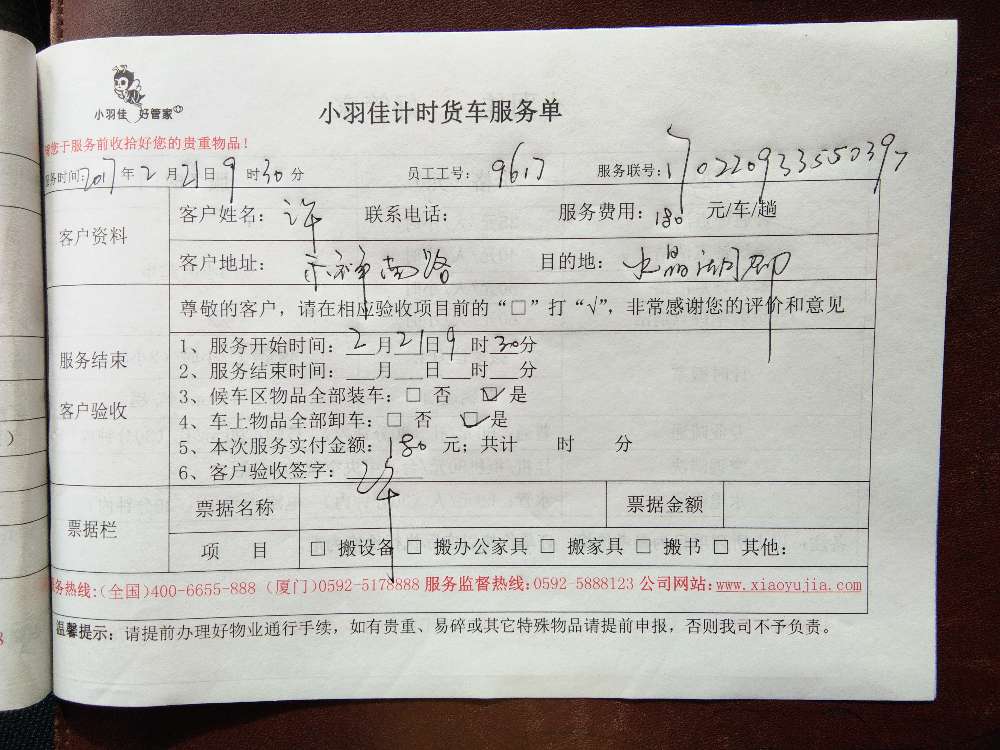 小羽佳 好管家
小羽佳计时货车服务单
您于服务前收拾好您的贵重物品！
务时间：2017年2月21日9时30分 员工工号：9617 服务联号：170220933550397
客户资料
客户姓名：许 联系电话： 服务费用：180 元/车/趟
客户地址：南路 目的地：水晶湖郡
尊敬的客户，请在相应验收项目前的“□”打“√”，非常感谢您的评价和意见
服务结束
客户验收
1、服务开始时间：2月21日9时30分
2、服务结束时间：___月___日___时___分
3、候车区物品全部装车：□ 否 ☑是
4、车上物品全部卸车：□ 否 ☑是
5、本次服务实付金额：180 元；共计 时 分
6、客户验收签字：许
票据栏
票据名称 票据金额
项 目 □ 搬设备 □ 搬办公家具 □ 搬家具 □ 搬书 □ 其他：
务热线:(全国)400-6655-888 (厦门)0592-5178888 服务监督热线:0592-5888123 公司网站:www.xiaoyujia.com
温馨提示：请提前办理好物业通行手续，如有贵重、易碎或其它特殊物品请提前申报，否则我司不予负责。